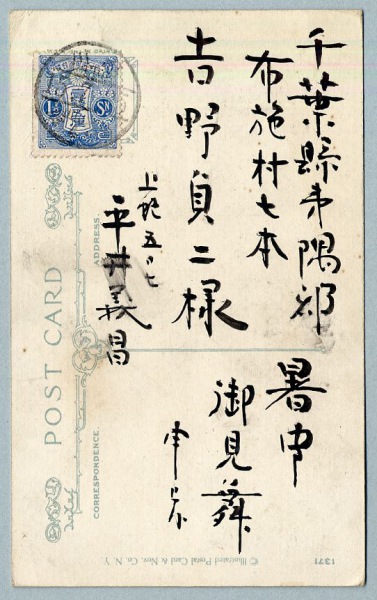 千葉縣夷隅郡
布施村七本
吉野貞二様
平井義昌
暑中
御見舞
申上
1½ Sn
POST CARD
ADDRESS.
CORRESPONDENCE.
© Illustrated Postal Card & Nov. Co. N. Y
1371